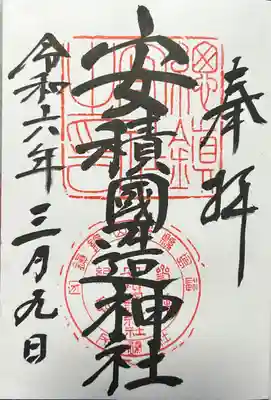 奉拝
安積國造神社
令和六年三月九日